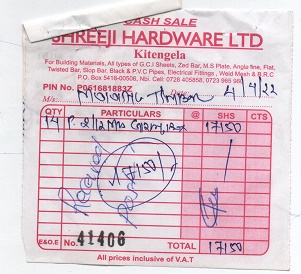 CASH SALE
SHREEJI HARDWARE LTD
Kitengela
For Building Materials, All types of G.C.I Sheets, Zed Bar, M.S Plate, Angle fine, Flat,
Twisted Bar, Slop Bar, Black & P.V.C Pipes, Electrical Fittings, Weld Mesh & B.R.C
P.O Box 5418-00506, Nbi. Cell: 0728 405858, 0723 965
PIN No. P051681883Z
M/s: Date: 4/4/22
QTY PARTICULARS @ SHS CTS
14 17150
Received
17150/=
E&O.E No. 41406 TOTAL 17150
All prices inclusive of V.A.T